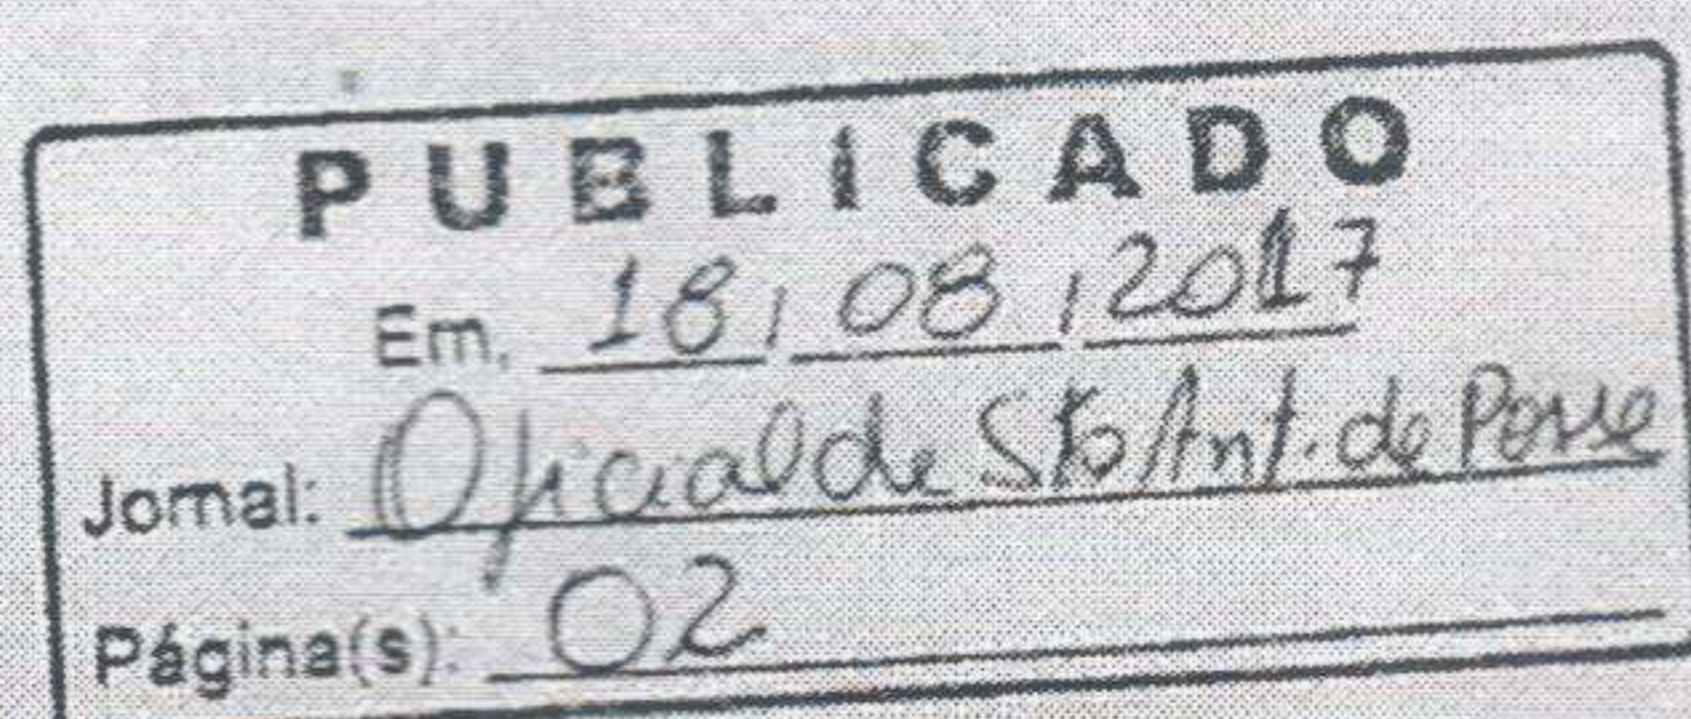 PUBLICADO
Em, 18/08/2017
Jornal: Oficial de Sto Ant. de Posse
Página(s): 02